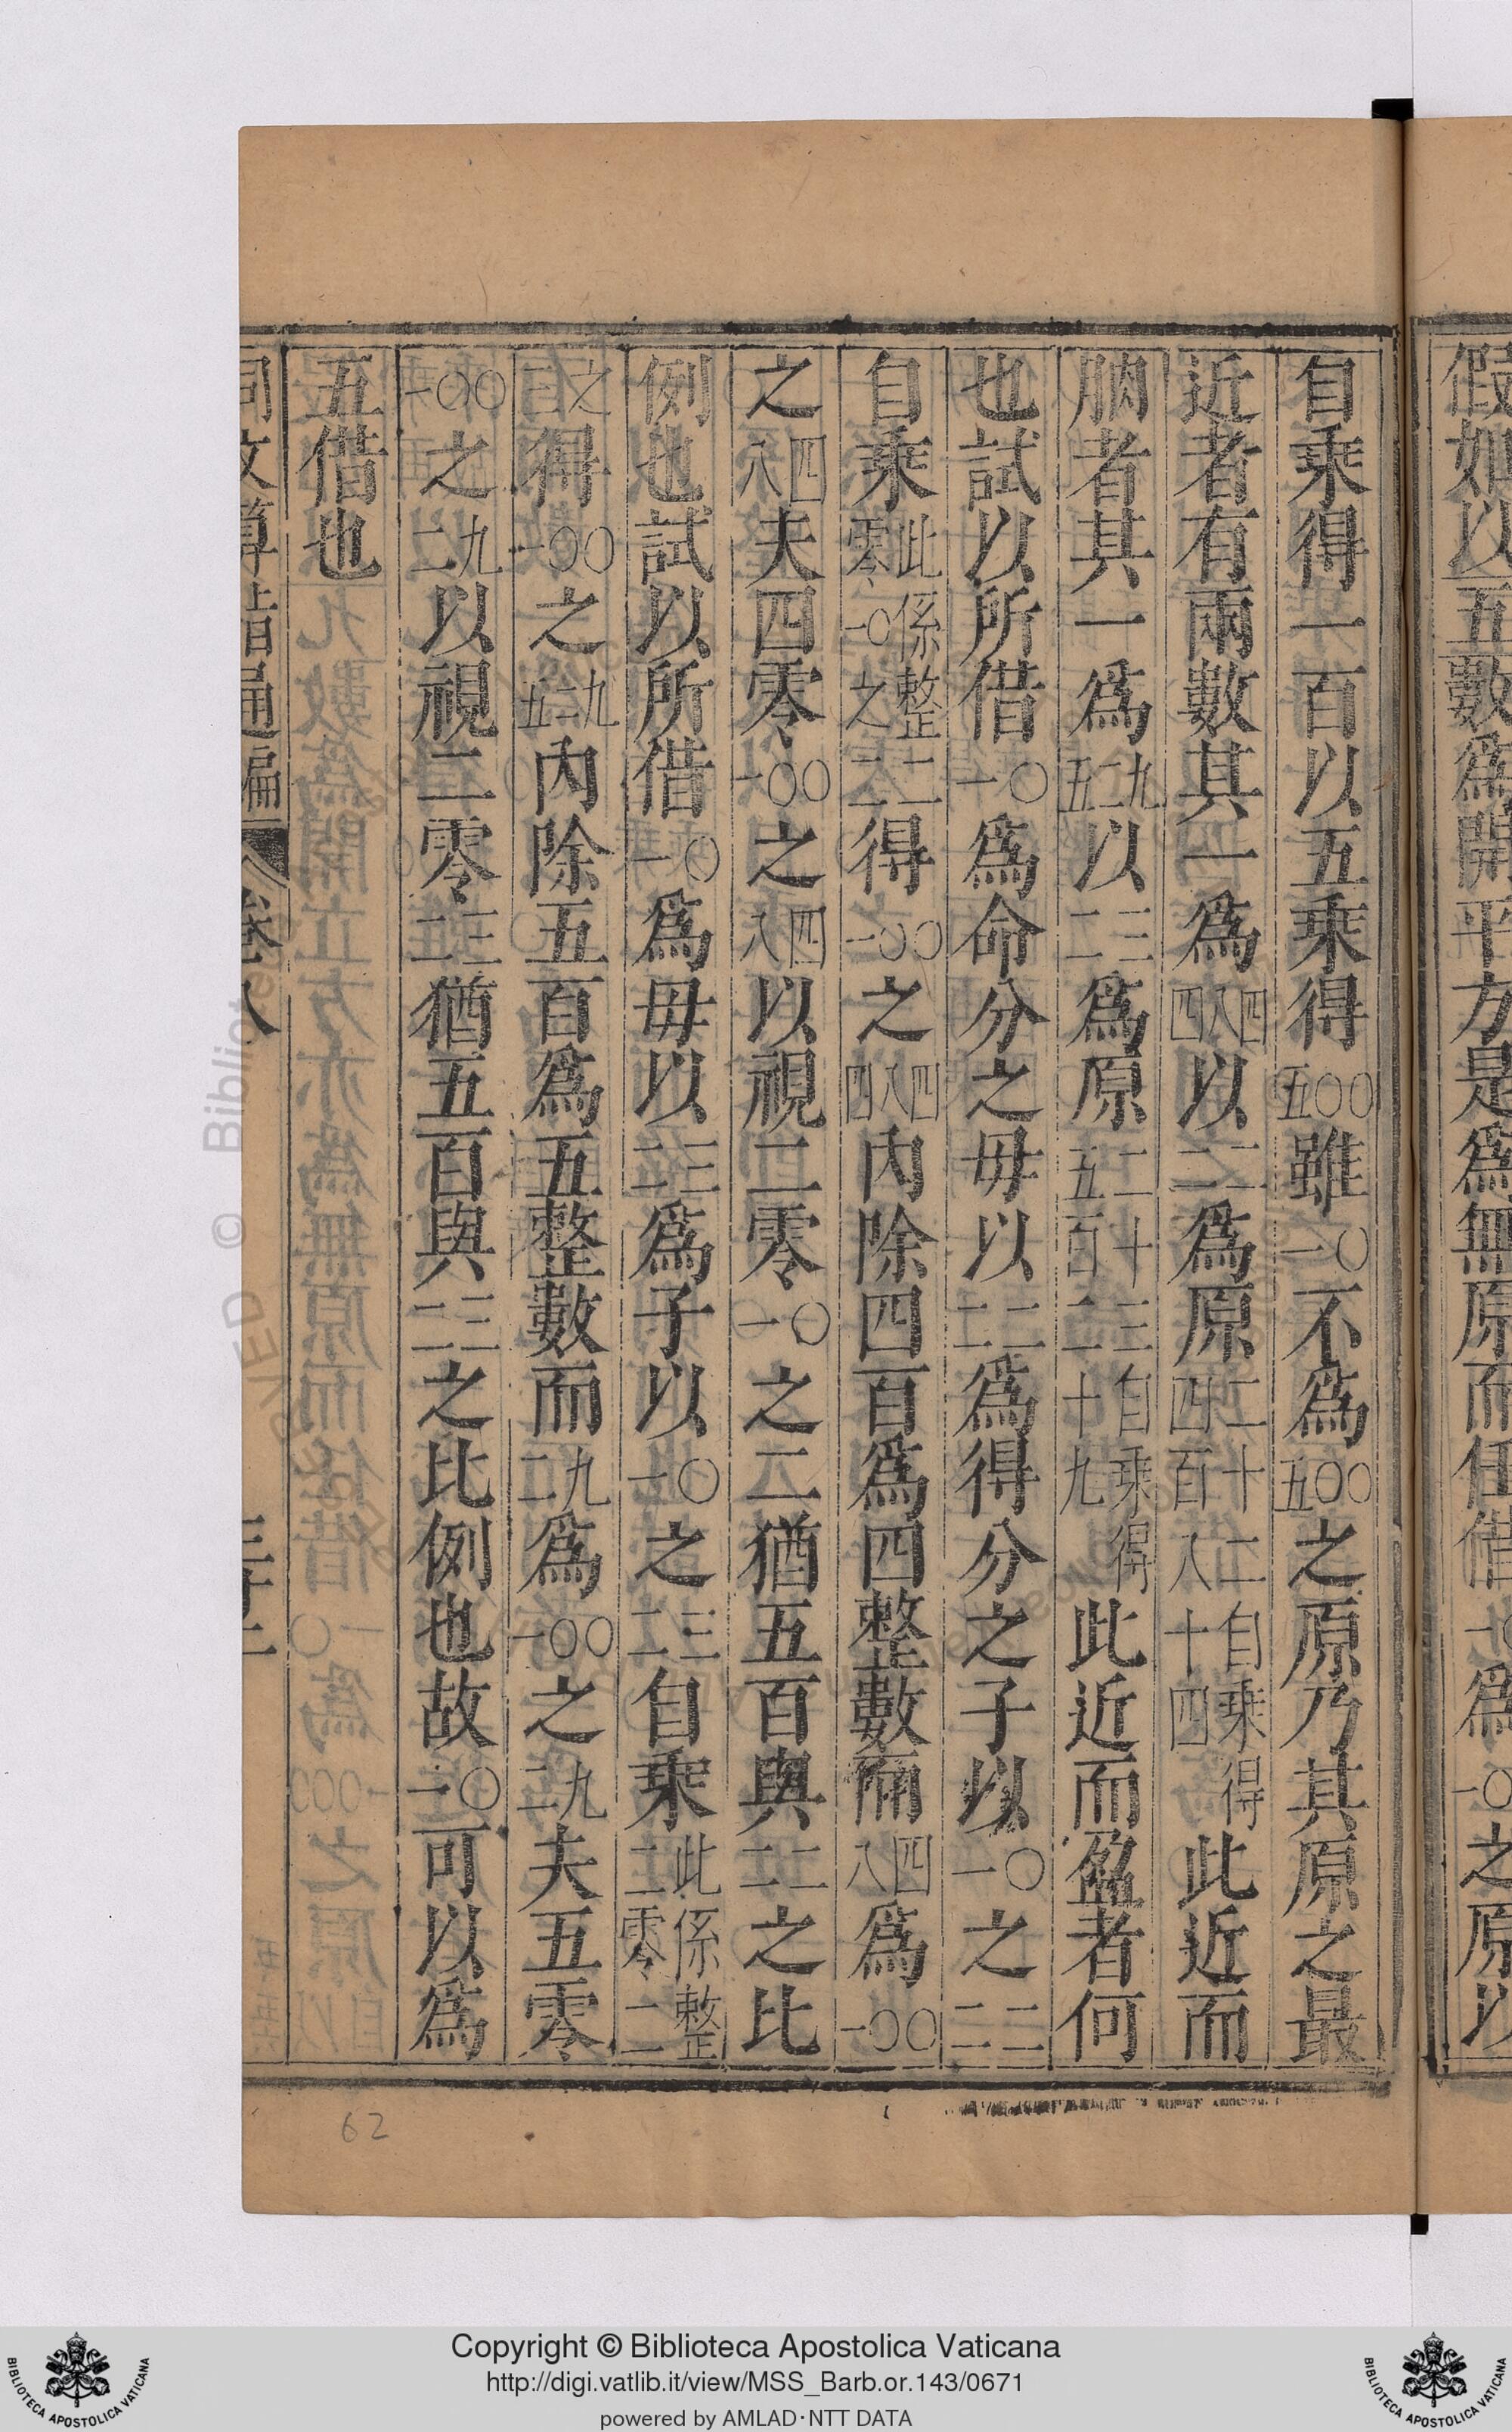 假如以五數爲開平方是爲無原而任借一〇爲一〇之原以
自乘得一百以五乘得五〇〇雖一〇不爲五〇〇之原乃其原之最
近者有兩數其一爲四八四以二二爲原二十二自乘得四百八十四此近而
朒者其一爲五二九以二三爲原二十三自乘得五百二十九此近而盈者何
也試以所借一〇爲命分之毋以二二爲得分之子以一〇之二二
自乘此係整二零一〇之二得一〇〇之四八四內除四百爲四整數而八四爲一〇〇
之八四夫四零一〇〇之八四以視二零一〇之二猶五百與二二之比
例也試以所借一〇爲毋以二三爲子以一〇之二三自乘此係整二零二
之三得一〇〇之五二九內除五百爲五整數而二九爲一〇〇之二九夫五零
一〇〇之二九以視二零二三猶五百與二三之比例也故一〇可以爲
五借也
同文算指通編 卷八
62
Copyright © Biblioteca Apostolica Vaticana
http://digi.vatlib.it/view/MSS_Barb.or.143/0671
powered by AMLAD·NTT DATA
BIBLIOTECA APOSTOLICA VATICANA
BIBLIOTECA APOSTOLICA VATICANA